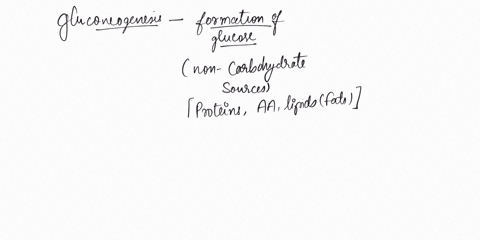 gluconeogenesis — formation of
glucose
(non-Carbohydrate
Sources)
[Proteins, AA, lipids (fats)]